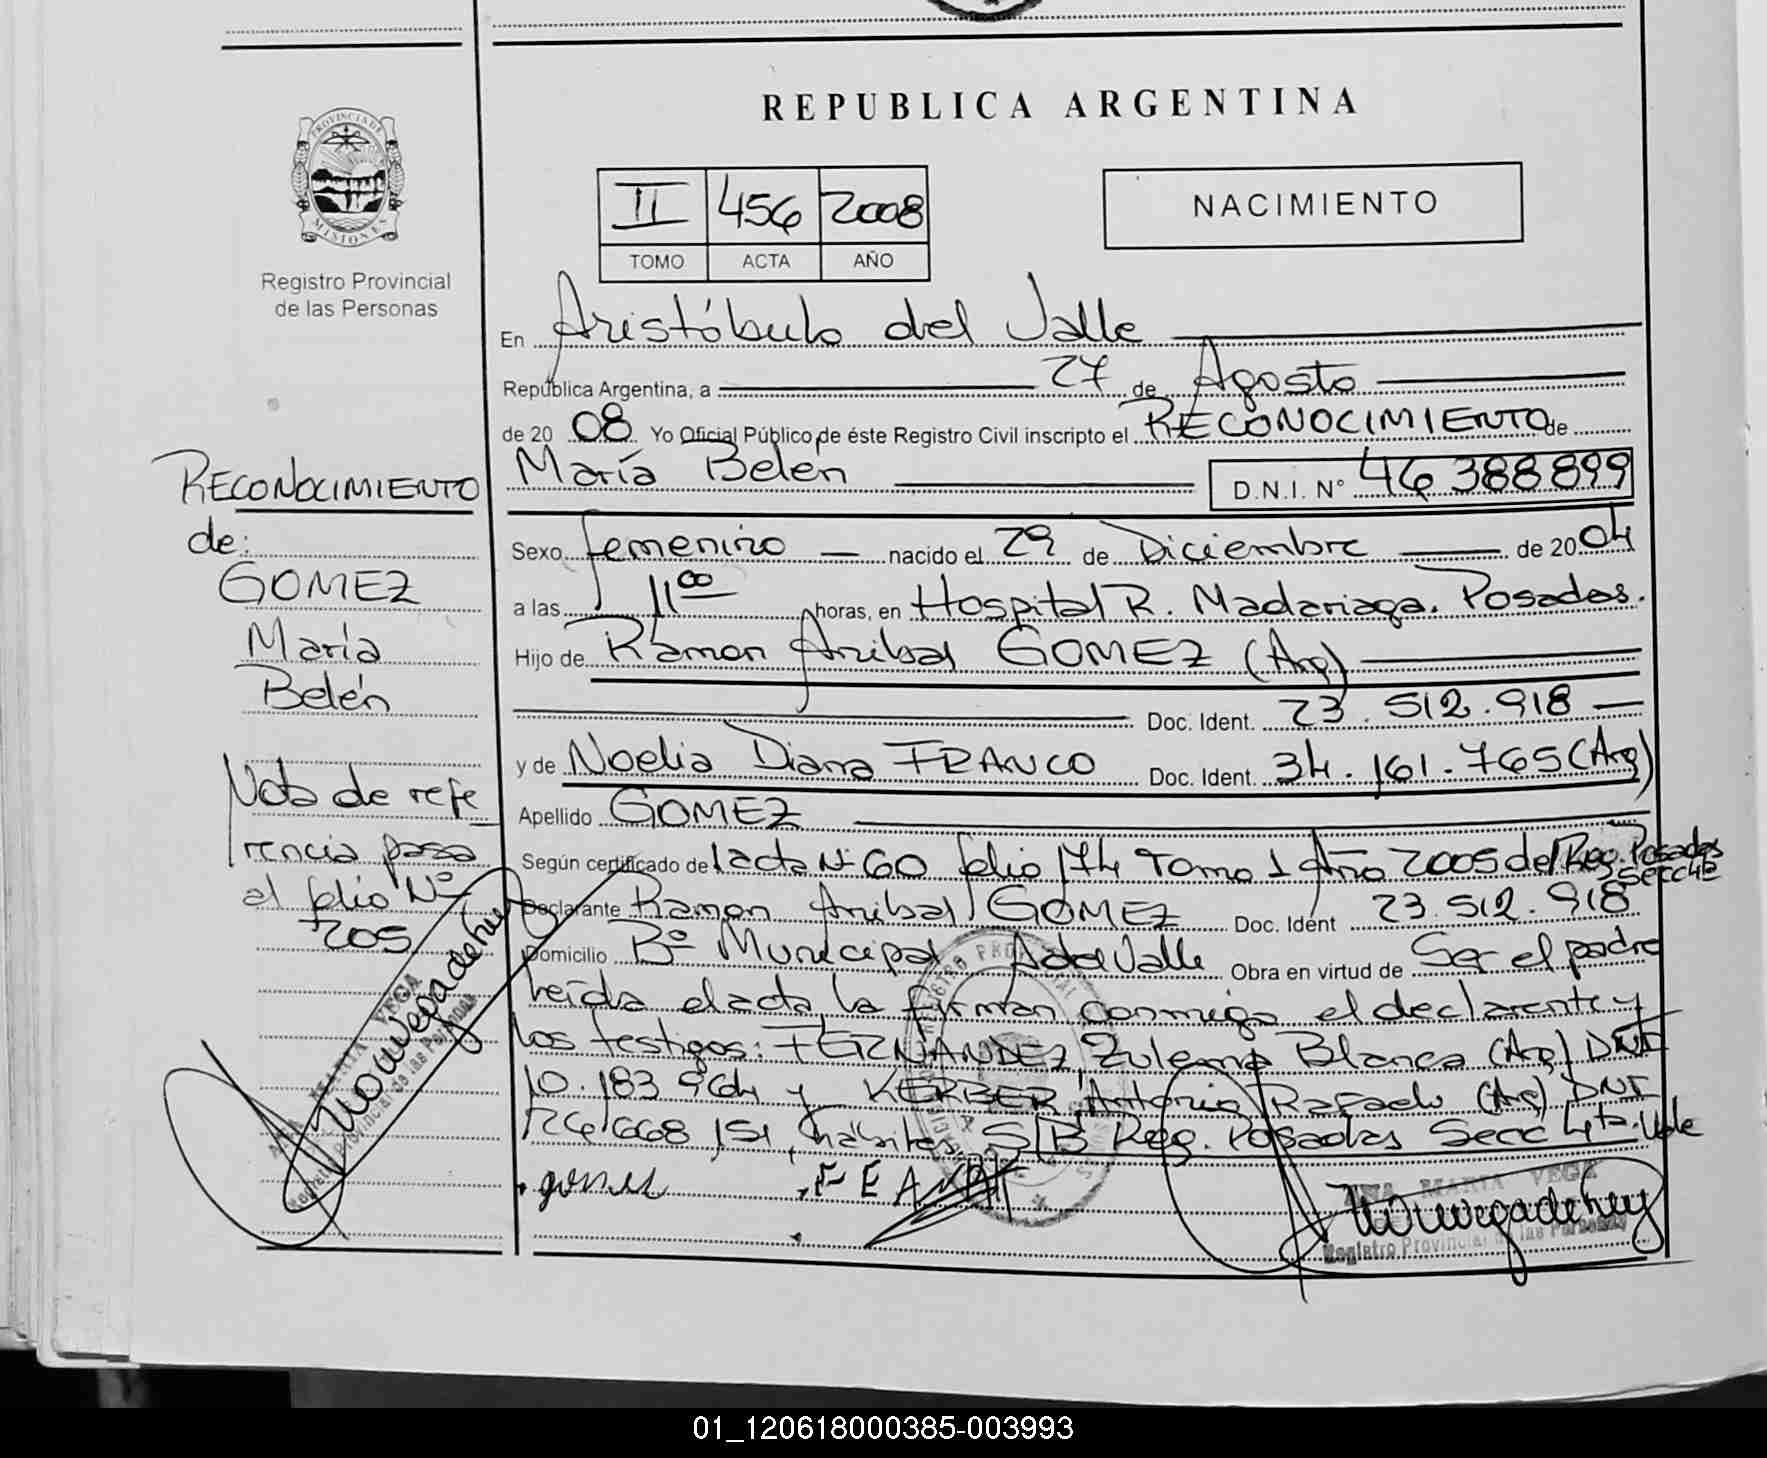 REPUBLICA ARGENTINA
PROVINCIA DE
MISIONES
Registro Provincial
de las Personas
II 456 2008
TOMO ACTA AÑO
NACIMIENTO
En Aristóbulo del Valle
República Argentina, a 27 de Agosto
de 20 08 Yo Oficial Público de éste Registro Civil inscripto el RECONOCIMIENTO de
María Belén D.N.I. N° 46 388 899
Sexo femenino nacido el 29 de Diciembre de 20 04
a las 11 00 horas, en Hospital R. Madariaga. Posadas.
Hijo de Ramon Anibal GOMEZ (Arg)
Doc. Ident. 23.512.918
y de Noelia Diana FRANCO Doc. Ident. 34.161.765 (Arg)
Apellido GOMEZ
Según certificado de 1 acta N° 60 folio 174 Tomo 1 Año 2005 del Reg. Posadas
Secc 4ta
Declarante Ramon Anibal GOMEZ Doc. Ident 23.512.918
Domicilio B° Municipal A del Valle Obra en virtud de Ser el padre
leída el acta, la firman conmigo el declarante y
los testigos: FERNANDEZ, Zulema Blanca (Arg) DNI
10.183.964 y KERBER, Antonio Rafael (Arg) DNI
26.668.151, S/B Reg. Posadas Secc 4ta. Vale
ANA MARIA VEGA
Registro Provincial de las Personas
RECONOCIMIENTO
de:
GOMEZ
María
Belén
Nota de refe
rencia pasa
al folio N°
205
ANA MARIA VEGA
Registro Provincial de las Personas
01_120618000385-003993